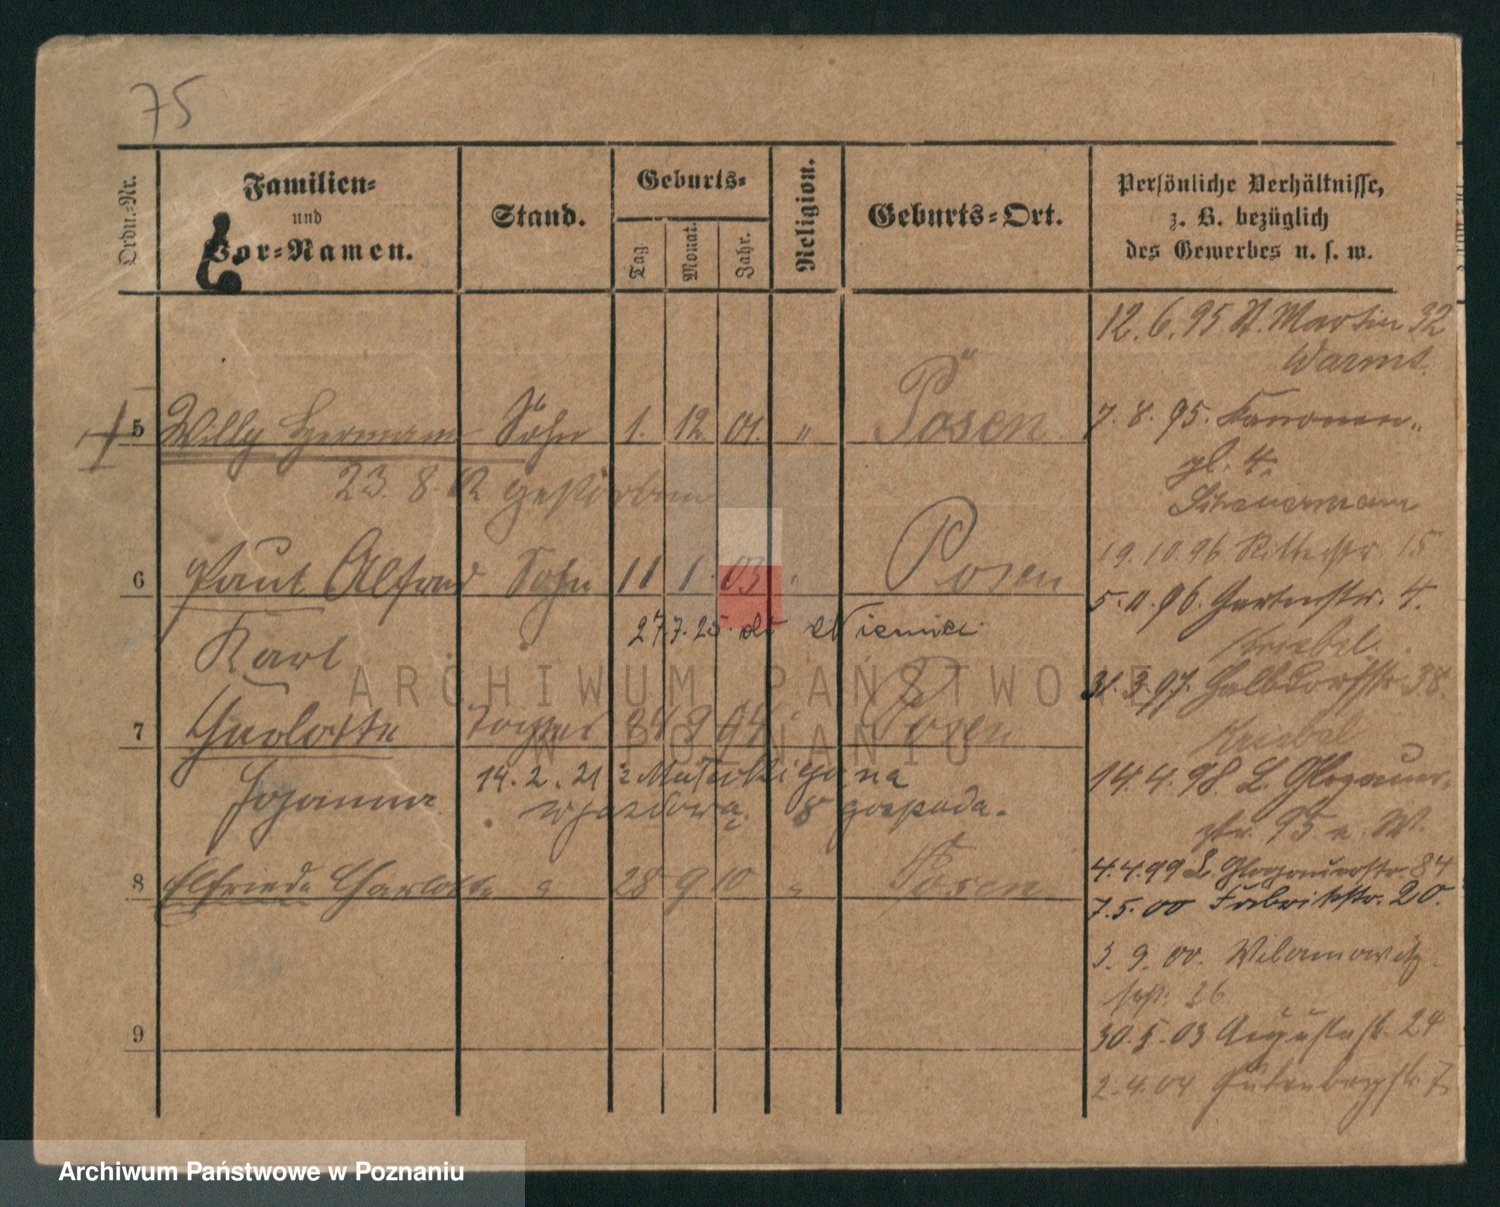 75
Ordn.-Nr.
Familien-
und
Vor-Namen.
Stand.
Geburts-
Tag
Monat.
Jahr.
Religion.
Geburts-Ort.
Persönliche Verhältnisse,
z. B. bezüglich
des Gewerbes u. s. w.
12.6.95 St. Martin 32
5 Willy Hermann Sohn 1. 12. 01. " Posen
23. 8. 02 gestorben
7. 8. 95. Kanonen-
pl. 4.
Scheuermann
19.10.96 Ritterstr 15
6 Paul Alfred Sohn 11 1. 03 " Posen
Karl
27.7.25. do Niemiec
5.11.96. Gartenstr. 4.
Kriebel.
31.3.97. Halbdorfstr. 38.
Kriebel
7 Charlotte Tochter 24 9 04 " Posen
Johanna
14. 2. 21 z Mateckiego na
wjazdową 8 gospoda.
14.4.98 L. Glogauer-
str. 95
4.4.99 L. Glogauerstr. 84
7.5.00 Fabrikstr. 20.
8 Elfriede Charlotte " 28 9 10 " Posen
3. 9. 00. Wilamowitz-
str. 26
9
30.5.03 Augustastr. 24
2.4.04 Gutenbergstr. 7
ARCHIWUM PAŃSTWOWE
W POZNANIU
Archiwum Państwowe w Poznaniu